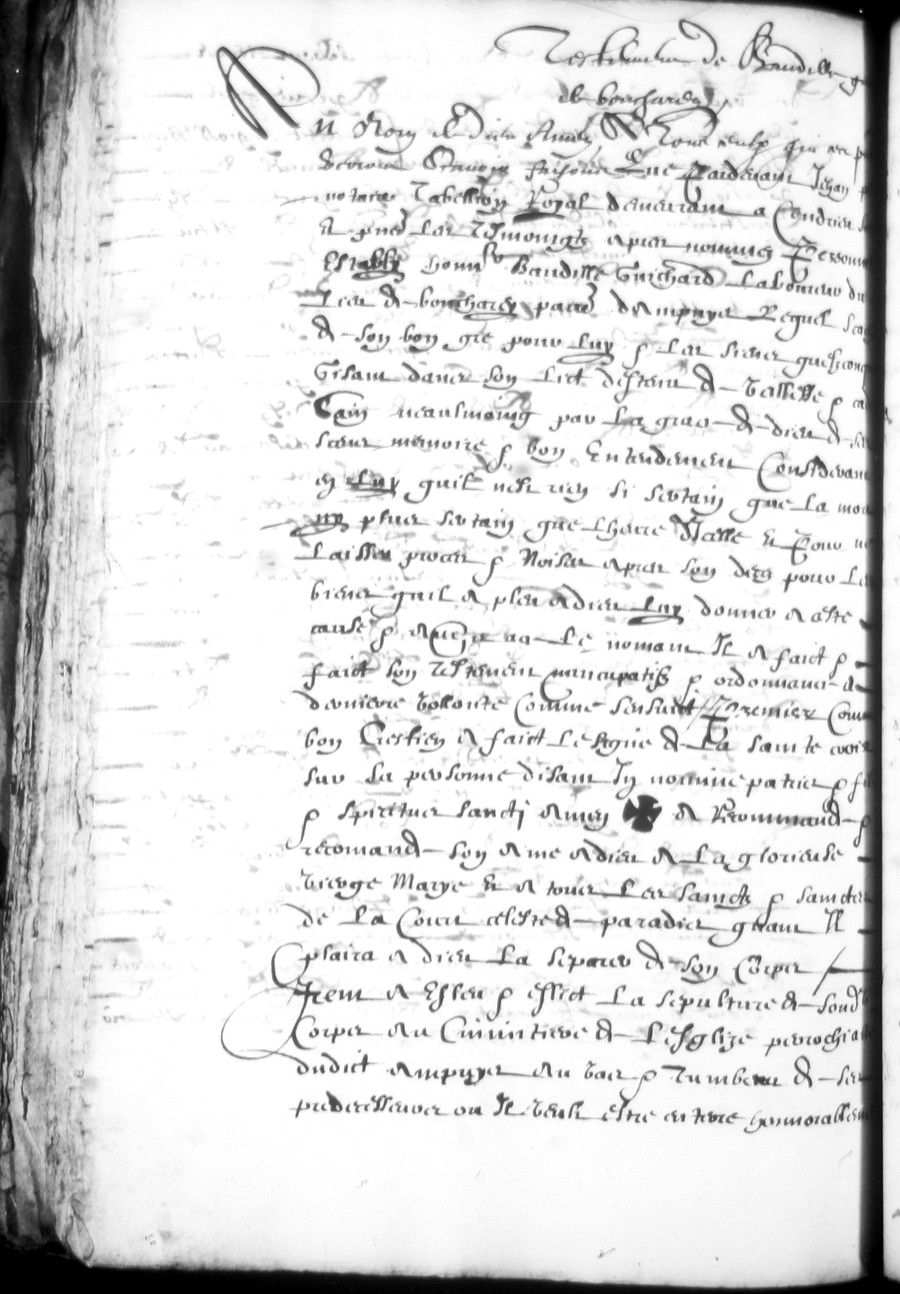 Testament de Baudille g
de boucharey
Au Nom de dieu Amen A Tous ceulx qui ces p
verront Scavoir faisons que Pardevant Jehan
notaire Tabellion Royal demeurant a Condrieu
Et pnts les tesmoings apres nommes Personne
Estably honnble Baudille Guichard Laboureur du
Lieu de boucharey paroe dAmpuys Lequel
de son bon gre pour luy & les siens quelzconq
Gisant dans son lict
Sain neaulmoings par la grace de dieu de
memoire & bon Entendement Considerant
en luy quil nest rien si certain que la mor
ny plus certain que lheure dicelle Et pour ne
Laisser proces & Noise apres son deces pour le
biens quil a pleu a dieu luy donner a ceste
cause & le nomant Il a faict &
faict son testement nuncupatif & ordonnance de
derniere volonte Comme sensuict Premier Com
bon Crestien a faict le signe de la sainte croix
sur sa personne disant In nomine patris & fi
& Spiritus sancti Amen ✠ a Recommande &
recomande son ame a dieu a La glorieuse
vierge Marye Et a tous les saincts & sainctes
de la Court celeste de paradis quant Il
plaira a dieu la separer de son Corps
Item a Esleu & eslict la sepulture de sond
Corps au Cimintiere de Lesglize parrochia
dudict ampuys au vas & Tumbeau de ses
predecesseurs ou Il veult estre enterre honnorablem